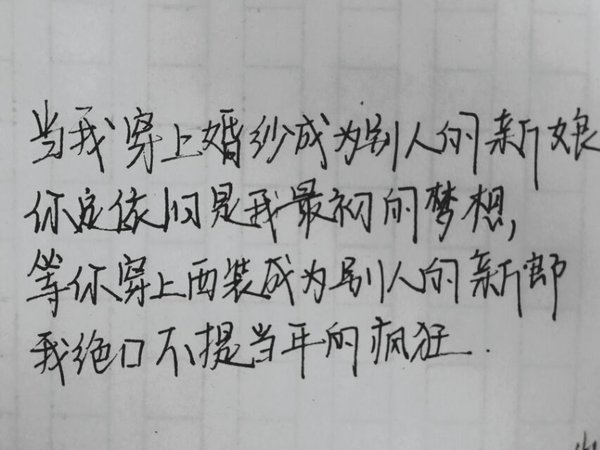 当我穿上婚纱成为别人的新娘
你定依旧是我最初的梦想,
等你穿上西装成为别人的新郎
我绝口不提当年的疯狂.